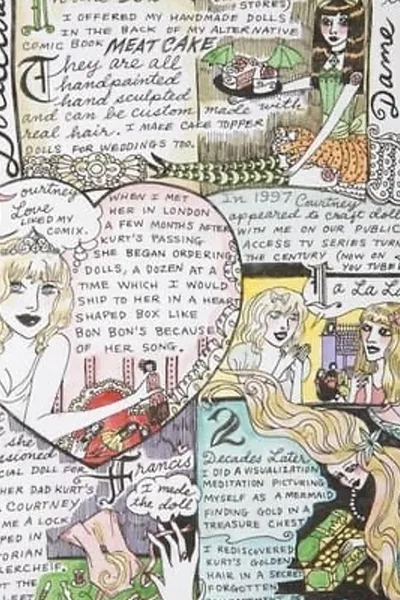 STORES)
I OFFERED MY HANDMADE DOLLS
IN THE BACK OF MY ALTERNATIVE
COMIC BOOK MEAT CAKE
They are all
handpainted
hand sculpted
and can be custom made with
real hair. I MAKE CAKE TOPPER
DOLLS FOR WEDDINGS TOO.
Dame
Courtney
Love
LIKED MY
COMIX.
WHEN I MET
HER IN LONDON
A FEW MONTHS AFTER
KURT'S PASSING
SHE BEGAN ORDERING
DOLLS, A DOZEN AT A
TIME WHICH I WOULD
SHIP TO HER IN A HEART
SHAPED BOX LIKE
BON BON'S BECAUSE
OF HER SONG.
In 1997 Courtney
appeared to craft doll
WITH ME ON OUR PUBLIC
ACCESS TV SERIES TURN
THE CENTURY (NOW ON
YOU TUBE
La La La
she
ssioned
CIAL DOLL FOR
HER DAD KURT'S
COURTNEY
ME A LOCK
PED IN
TORIAN
KERCHEIF.
OT THE
LEFT
Francis
I made
the doll
2
Decades Later
I DID A VISUALIZATION
MEDITATION PICTURING
MYSELF AS A MERMAID
FINDING GOLD IN A
TREASURE CHEST
I REDISCOVERED
KURT'S GOLDEN
HAIR IN A SECRET
FORGOTTEN